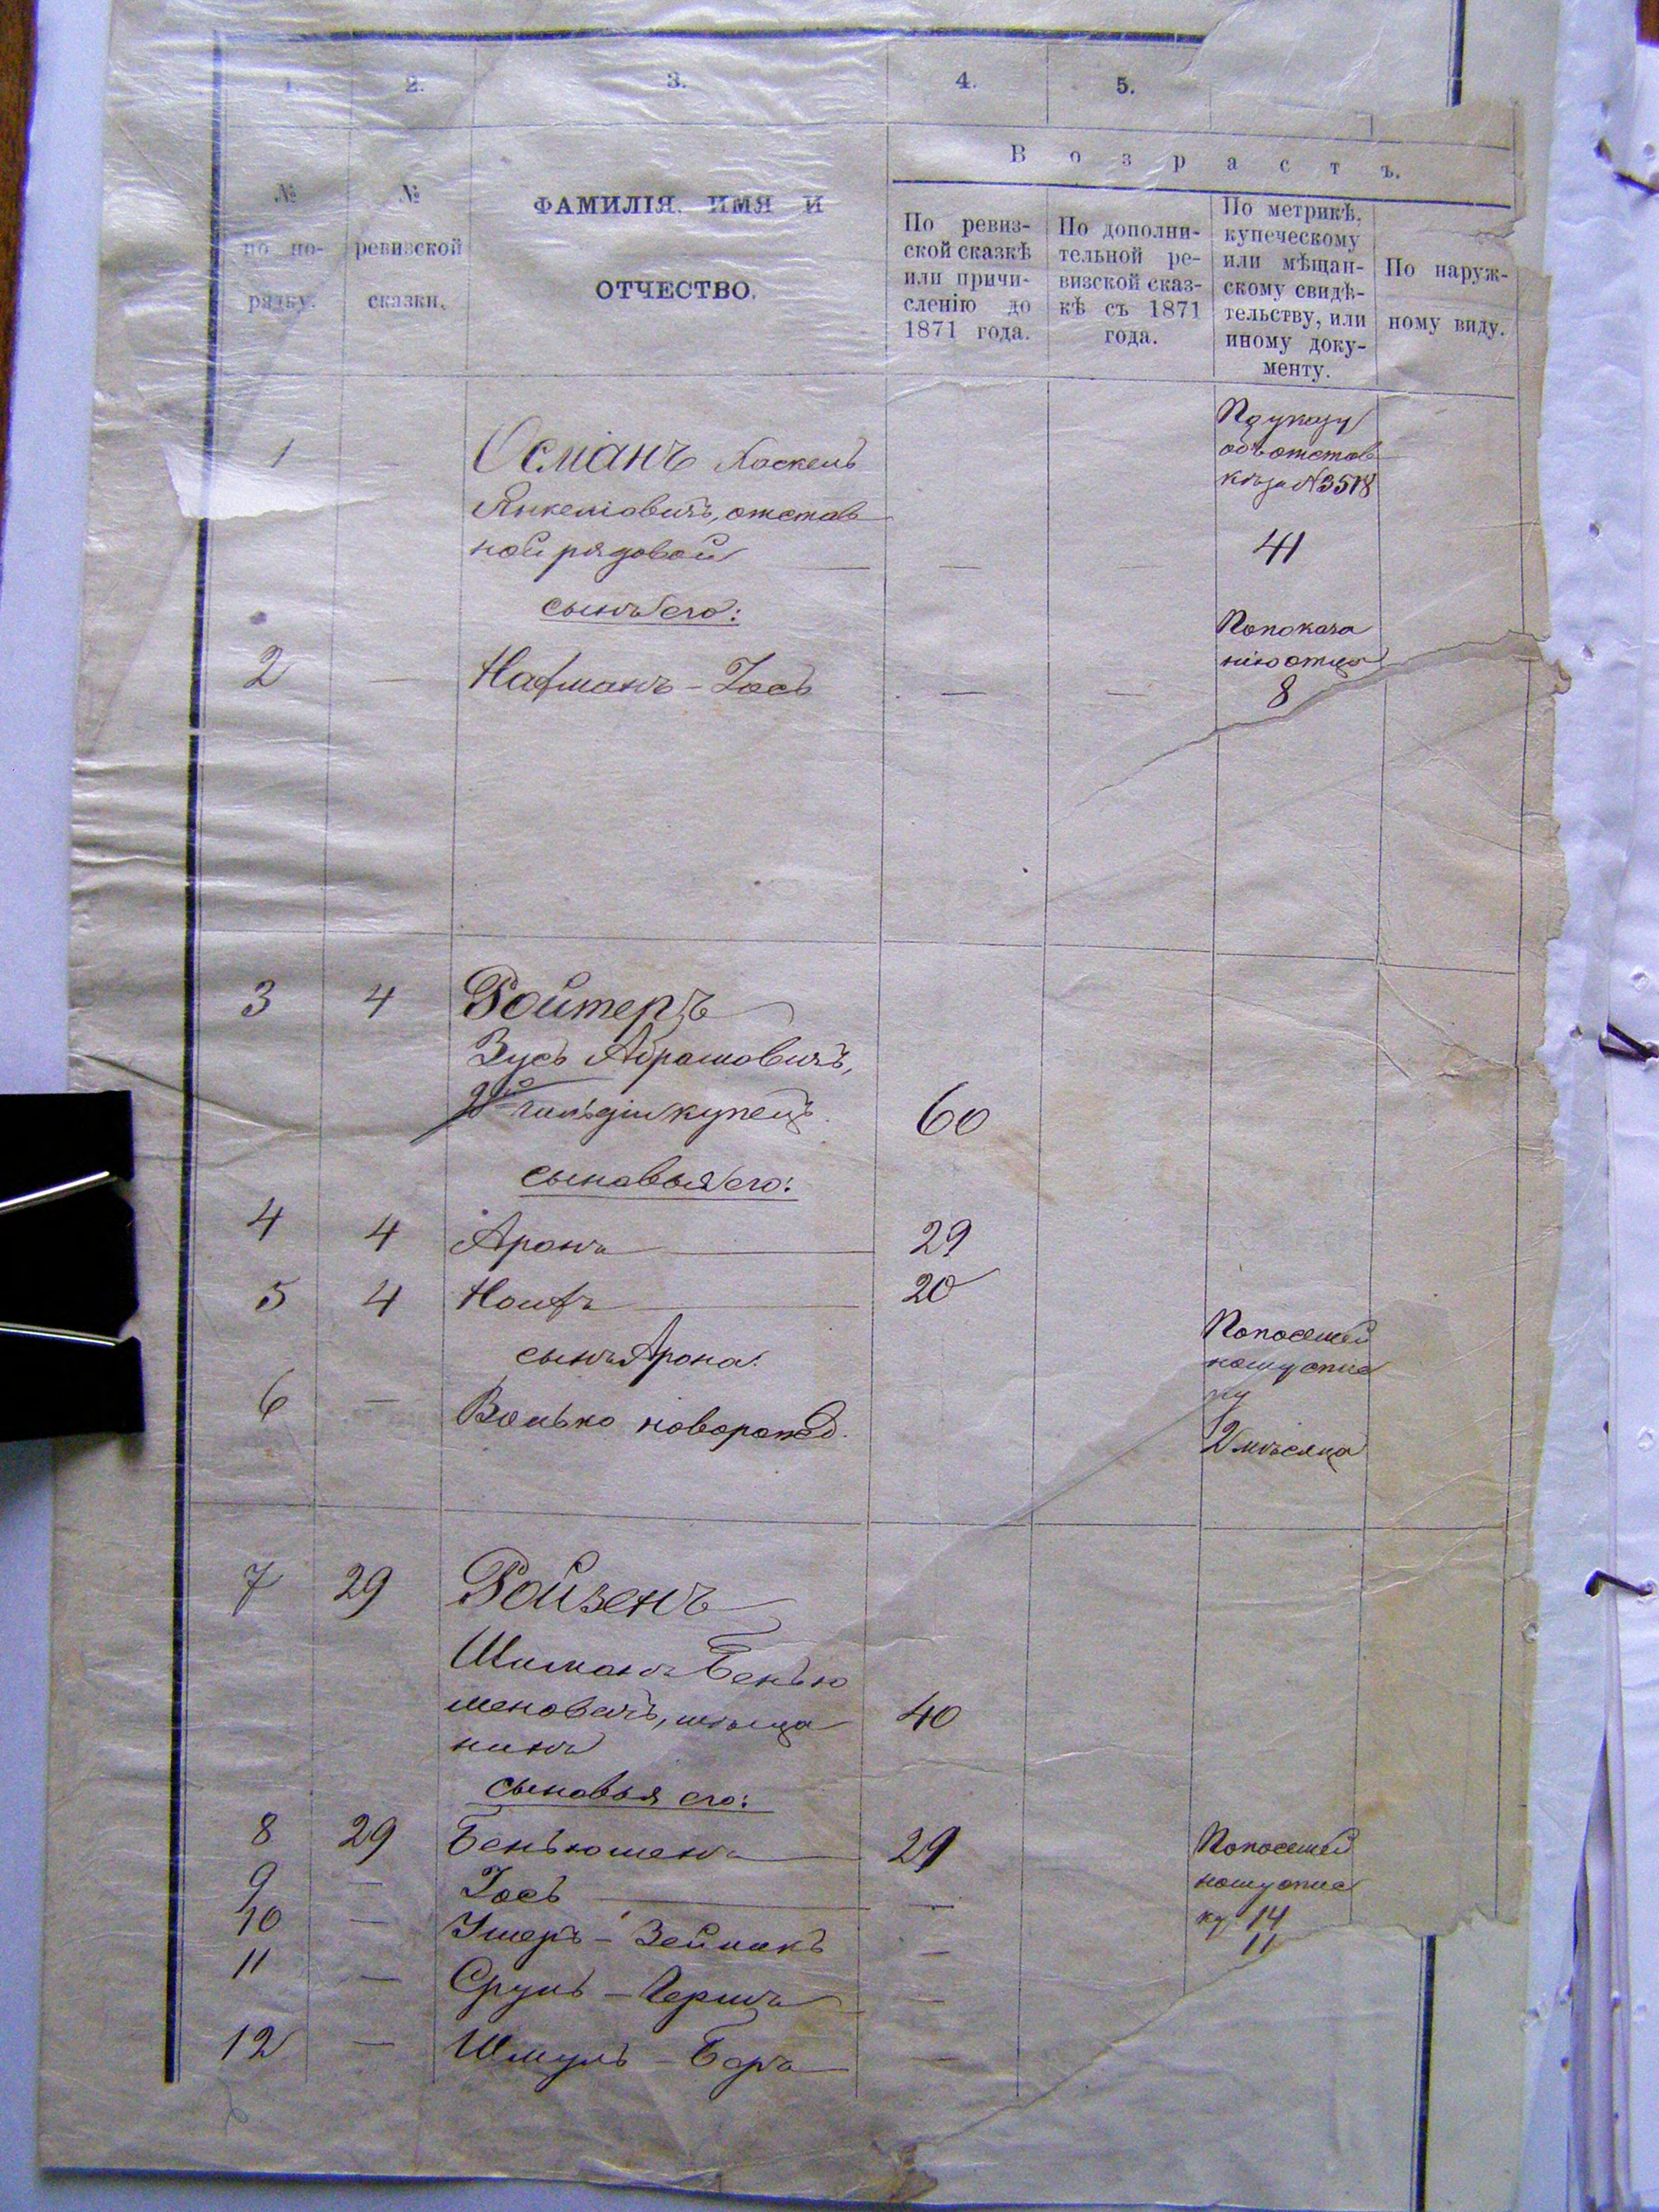 1. 2. 3. 4. 5.
Возрастъ.
№ по по-
рядку.
№
ревизской
сказки.
ФАМИЛІЯ, ИМЯ И
ОТЧЕСТВО.
По ревиз-
ской сказкѣ
или причи-
сленію до
1871 года.
По дополни-
тельной ре-
визской сказ-
кѣ съ 1871
года.
По метрикѣ,
купеческому
или мѣщан-
скому свидѣ-
тельству, или
иному доку-
менту.
По наруж-
ному виду.
1 — Османъ Хаскель
Янкеліовичъ, отстав
ной рядовой — —
По указу
объ отстав
кѣ за №3518
41
сынъ его:
2 — Нахманъ - Іось — —
По показа
нію отца
8
3 4 Ройтеръ
Зусь Абрамовичъ,
2й гильдіи купецъ. 60
сыновья его:
4 4 Аронъ 29
5 4 Ноихъ 20
сынъ Арона:
6 — Волько новорожд.
По посемей
ному спис
ку
2 мѣсяца
7 29 Ройзенъ
Шиманъ Бенью
меновичъ, мѣща 40
нинъ
сыновья его:
8 29 Беньюменъ 29
9 — Іось —
10 — Ушеръ - Зейманъ —
11 — Сруль - Гершъ —
12 — Шмуль - Беръ —
По посемей
ному спис
ку 14
11